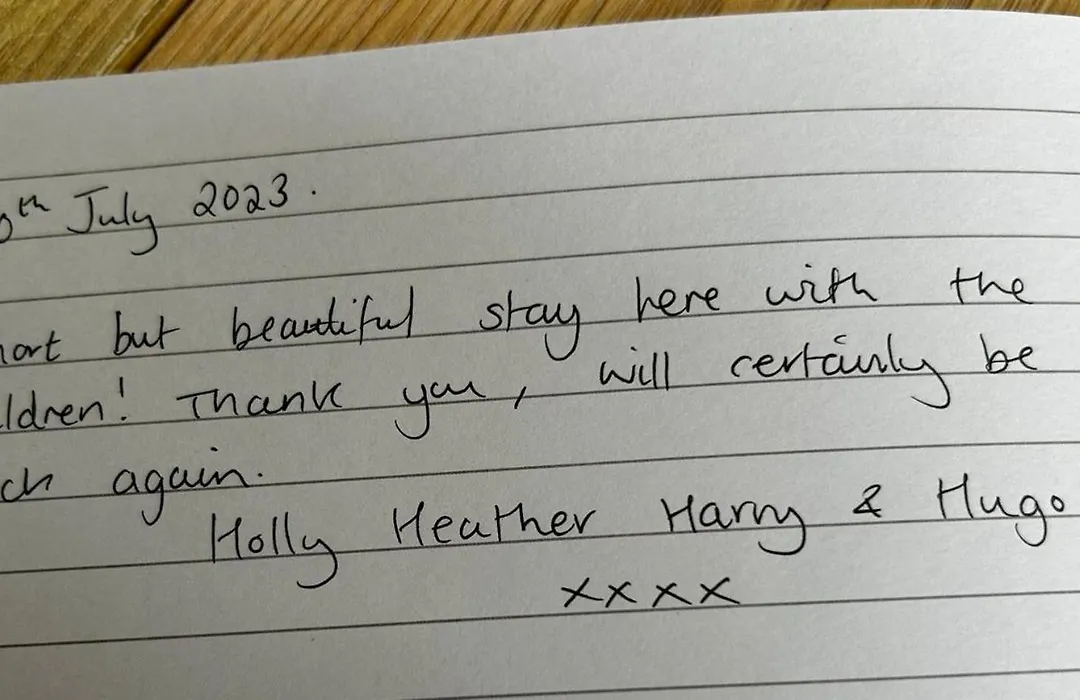 July 2023.
but beautiful stay here with the
Thank you, will certainly be
again.
Holly Heather Harry & Hugo
xxxx